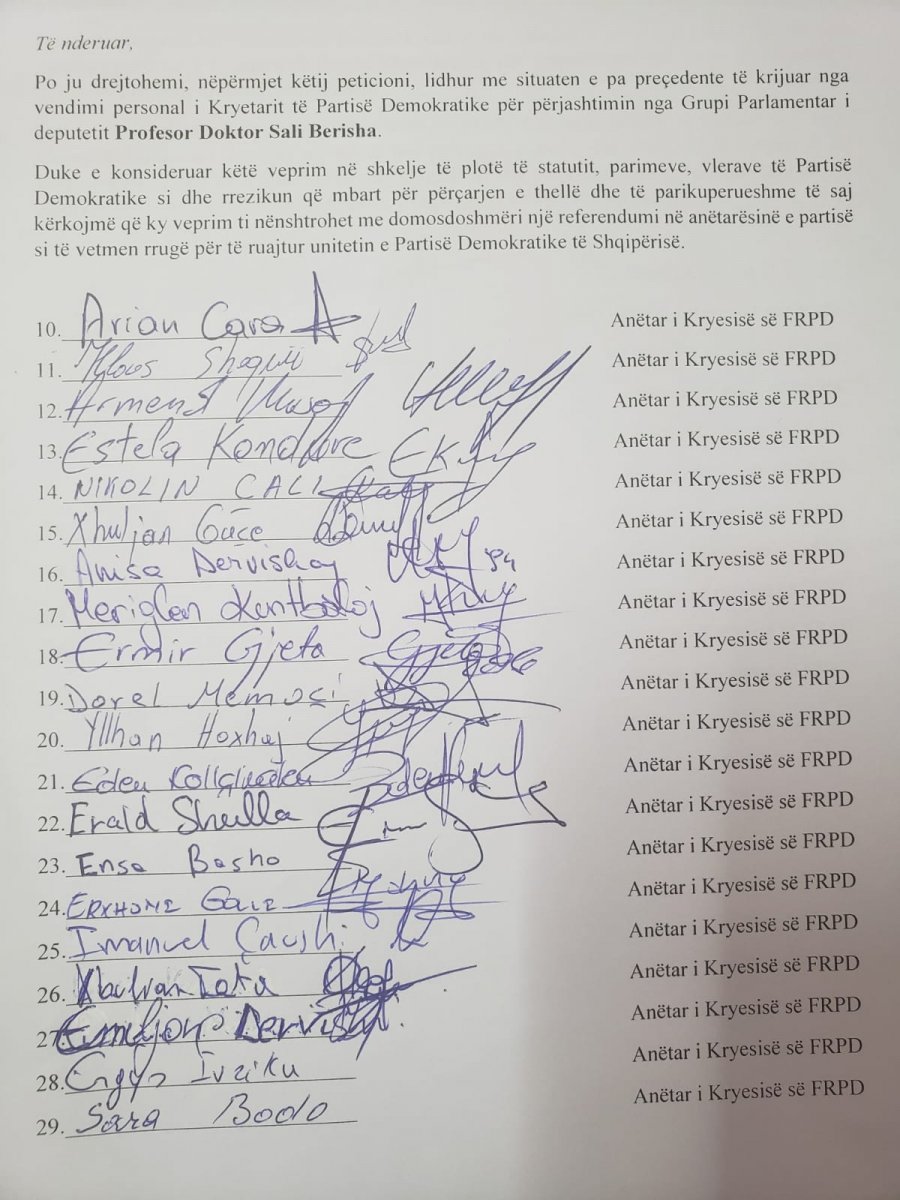 Të nderuar,
Po ju drejtohemi, nëpërmjet këtij peticioni, lidhur me situaten e pa preçedente të krijuar nga
vendimi personal i Kryetarit të Partisë Demokratike për përjashtimin nga Grupi Parlamentar i
deputetit Profesor Doktor Sali Berisha.
Duke e konsideruar këtë veprim në shkelje të plotë të statutit, parimeve, vlerave të Partisë
Demokratike si dhe rrezikun që mbart për përçarjen e thellë dhe të parikuperueshme të saj
kërkojmë që ky veprim ti nënshtrohet me domosdoshmëri një referendumi në anëtarësinë e partisë
si të vetmen rrugë për të ruajtur unitetin e Partisë Demokratike të Shqipërisë.
10. Arian Cara Anëtar i Kryesisë së FRPD
11. Anëtar i Kryesisë së FRPD
12. Armend Anëtar i Kryesisë së FRPD
13. Estela Anëtar i Kryesisë së FRPD
14. NIKOLIN CALI Anëtar i Kryesisë së FRPD
15. Xhuljan Anëtar i Kryesisë së FRPD
16. Anisa Dervishaj Anëtar i Kryesisë së FRPD
17. Meriglen Anëtar i Kryesisë së FRPD
18. Ermir Gjeta Anëtar i Kryesisë së FRPD
19. Dorel Memoçi Anëtar i Kryesisë së FRPD
20. Yllhan Hoxhaj Anëtar i Kryesisë së FRPD
21. Eden Anëtar i Kryesisë së FRPD
22. Erald Anëtar i Kryesisë së FRPD
23. Ensa Basho Anëtar i Kryesisë së FRPD
24. Anëtar i Kryesisë së FRPD
25. Imanuel Çaushi Anëtar i Kryesisë së FRPD
26. Anëtar i Kryesisë së FRPD
27. Emiljon Dervishi Anëtar i Kryesisë së FRPD
28. Anëtar i Kryesisë së FRPD
29. Sara Bodo Anëtar i Kryesisë së FRPD